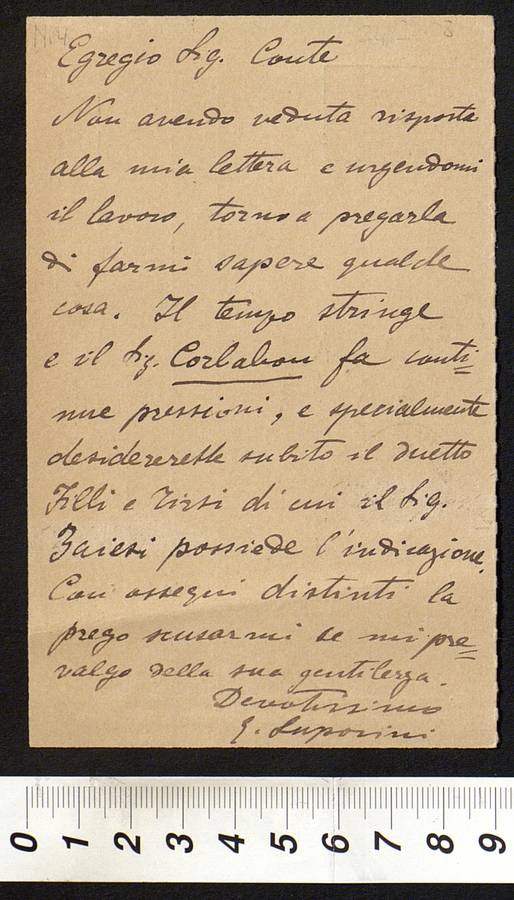 Egregio Sig. Conte
Non avendo veduta risposta
alla mia lettera e urgendomi
il lavoro, torno a pregarla
di farmi sapere qualche
cosa. Il tempo stringe
e il Sig. Corlabon fa conti=
nue pressioni, e specialmente
desidererebbe subito il duetto
Filli e Tirsi di cui il Sig.
possiede l'indicazione.
Con ossequi distinti la
prego scusarmi se mi pre=
valgo della sua gentilezza.
Devotissimo
G. Luporini
0 1 2 3 4 5 6 7 8 9